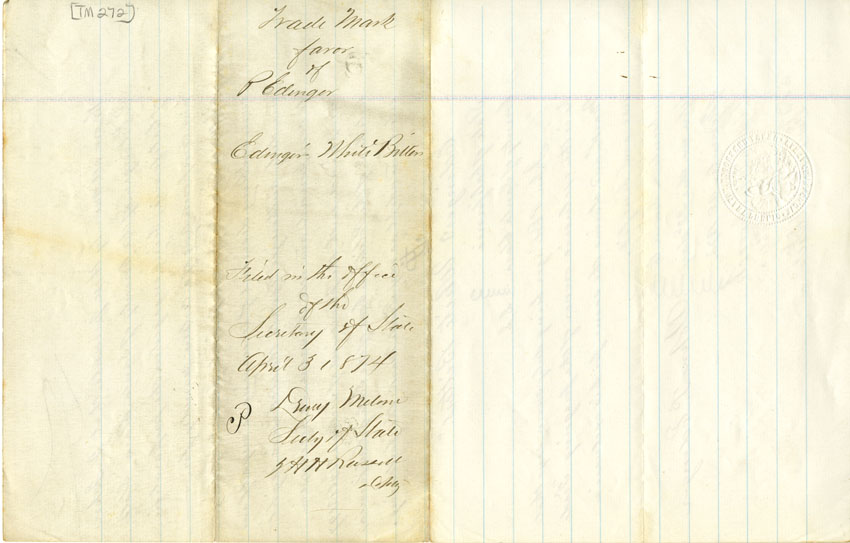 [TM 272]
Trade Mark
favor
of
P Edinger
Edinger White Bitters
Filed in the office
of the
Secretary of State
April 3 1874
P
Drury Melone
Secty of State
HH Russell